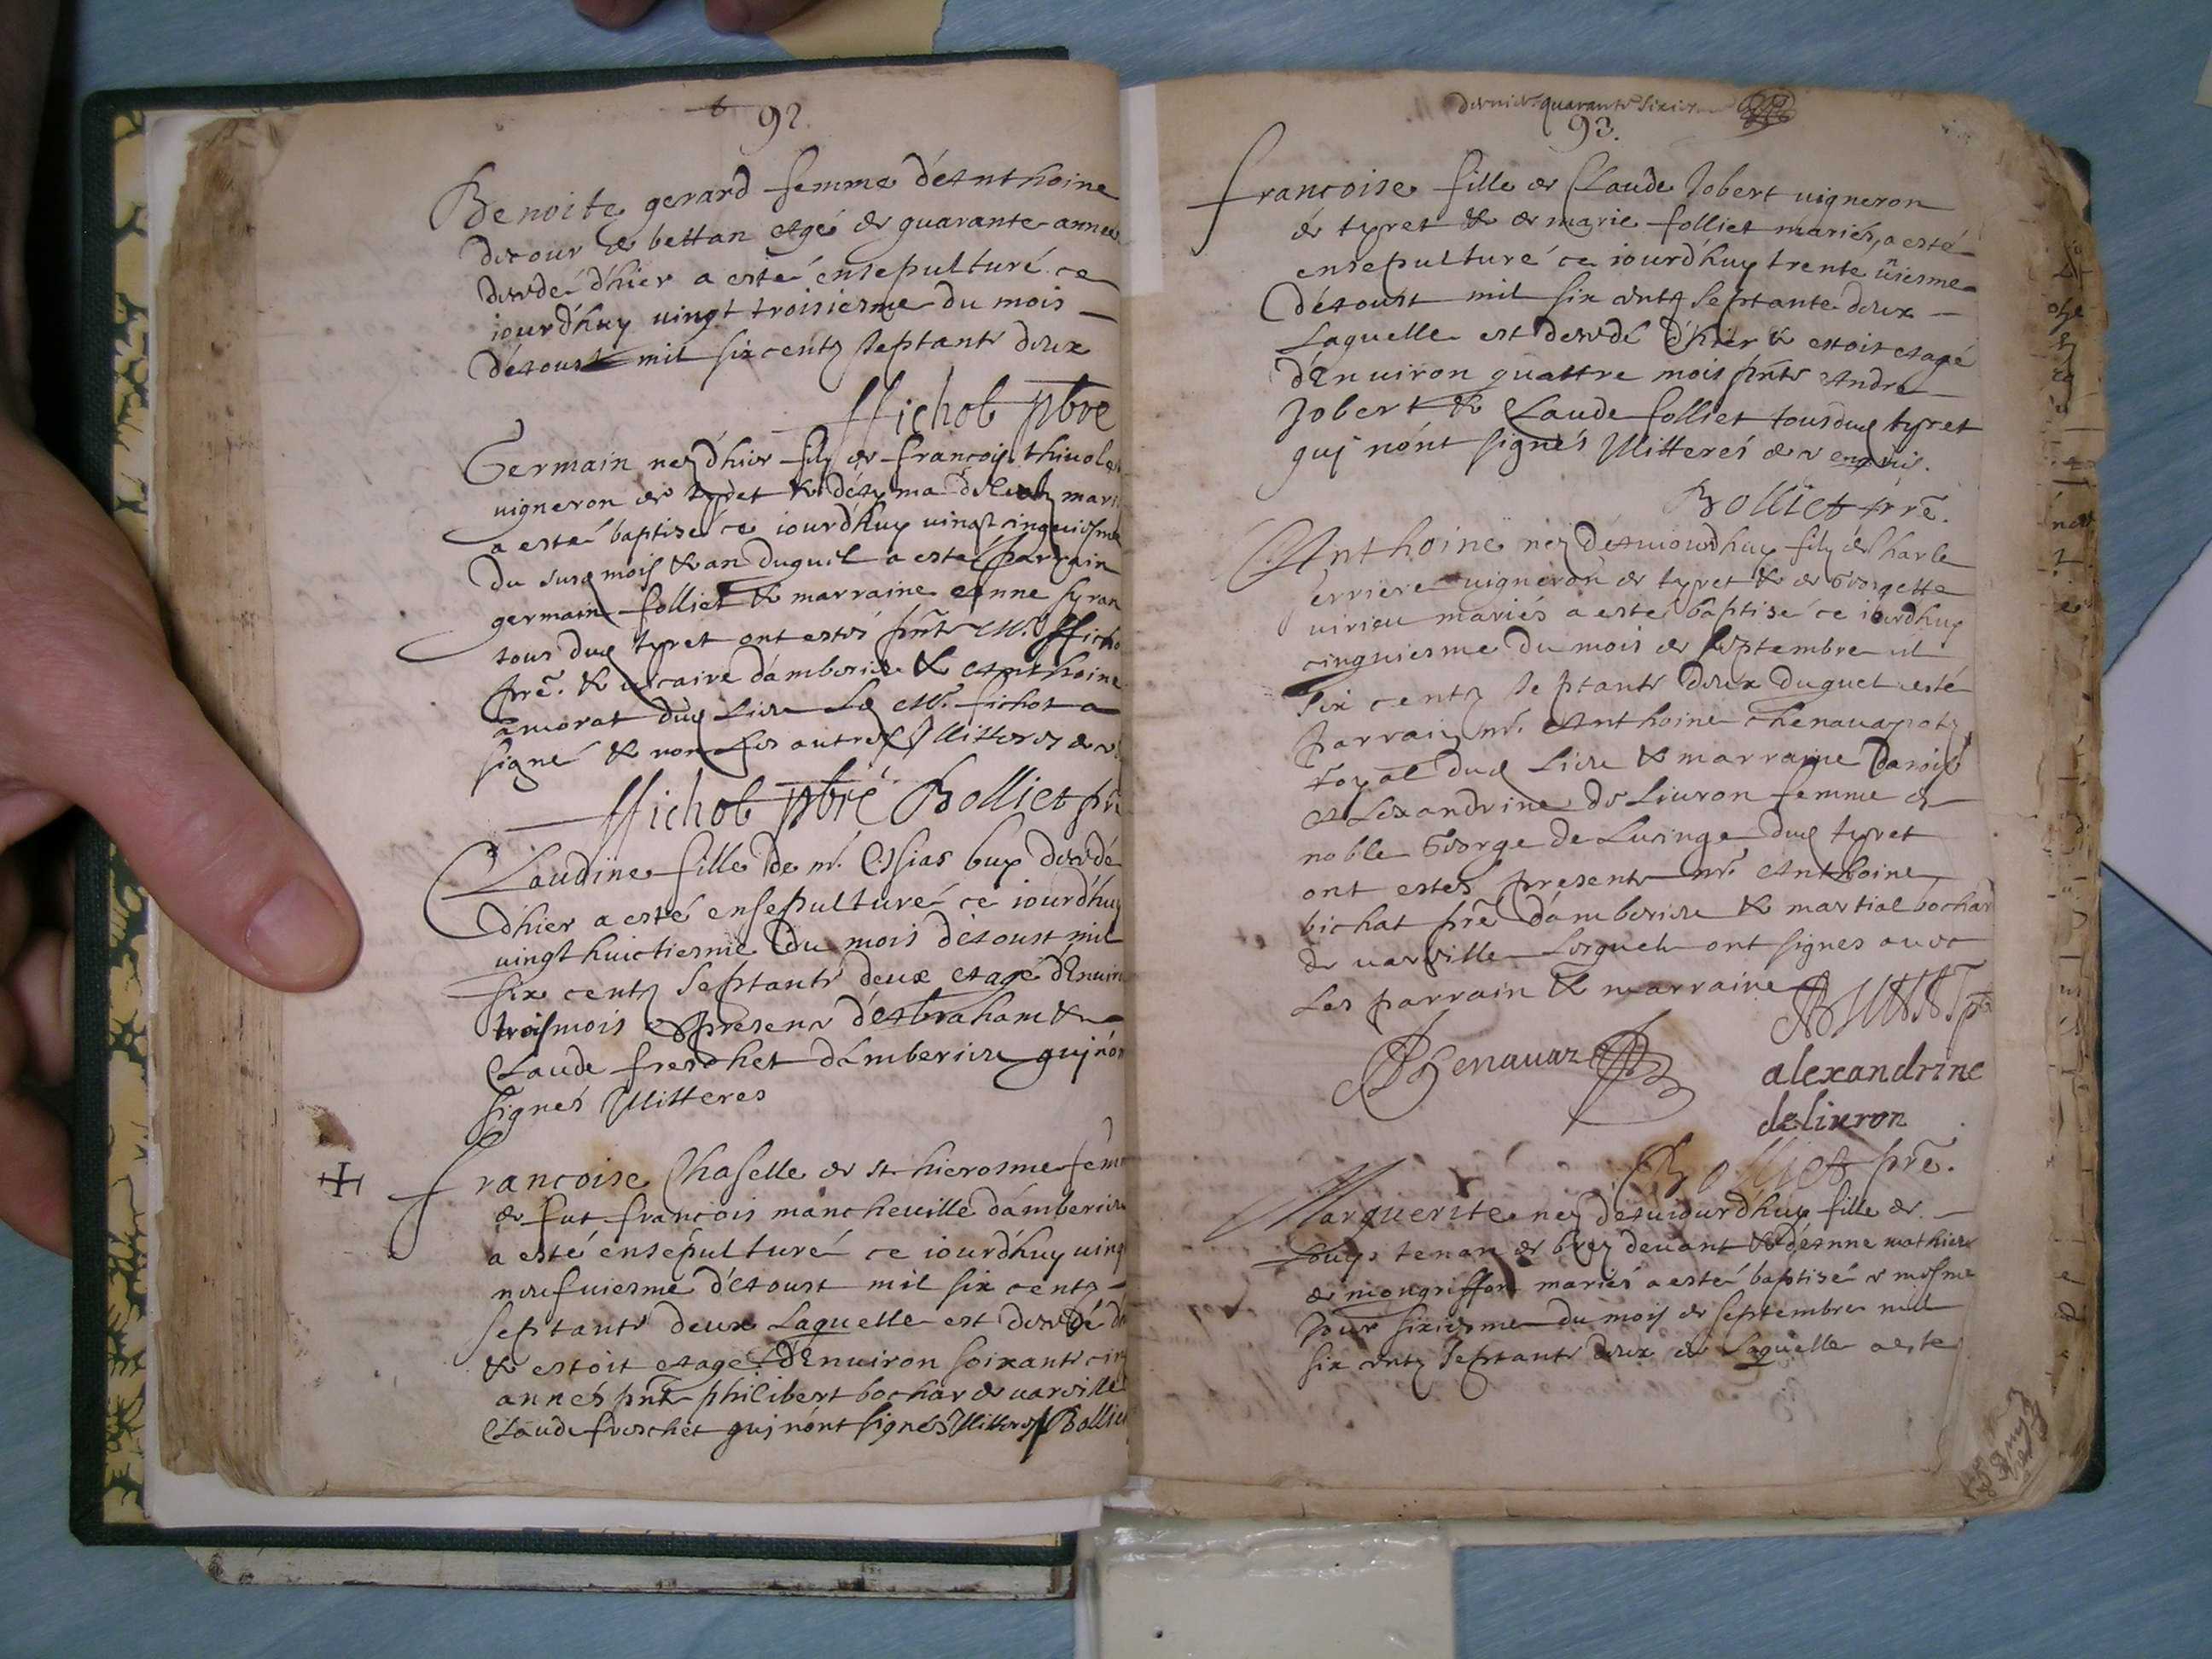 92.
Benoite gerard femme d'Anthoine
decour de bettan agé de quarante annees
decedé d'hier a esté ensepulturé ce
iourd'huy uingt troisiesme du mois
d'Aoust mil six centz septante deux
ffichot pbre
Germain nez d'hier filz de françois thiuolet
uigneron de tyret & d'Ayma mari
a esté baptisé ce iourd'huy uingt cinquiesme
du susd mois & an duquel a esté parrain
germain folliet & marraine Anne syran
tous dud tyret ont estés pñts Mr. fficho
prē. & uicaire d'amberieu & Anthoine
amorat dud Lieu Led Mr. fichot a
signé & non Les autres Jllitteres de
ffichot pbré Bolliet prē
Claudine fille de mr. Essias buy decedé
d'hier a esté ensepulturé ce iourd'huy
uingt huictiesme du mois d'Aoust mil
six centz septante deux Agé d'Enuiron
trois mois presens d'Abraham &
Claude freschet d'Amberieu qui n'on
signés Jllitteres
francoise Chaselle de st hierosme fem
de fut francois mancheuille d'amberieu
a esté ensepulturé ce iourd'huy uing
neufuiesme d'Aoust mil six centz
septante deux Laquelle est decedé d
& estoit Agé d'Enuiron soixante cinq
annes pñt philibert bochar de uareille
Claude freschet qui n'ont signés Jllitteres Bolliet
dernier quarante sixiesme
93.
francoise fille de Claude Jobert uigneron
de tyret & de marie folliet mariés, a esté
ensepulturé ce iourd'huy trente uniesme
d'Aoust mil six centz septante deux
Laquelle est decedé d'hier & estoit Agé
d'Enuiron quattre mois pñts Andre
Jobert & Claude folliet tous dud tyret
qui n'ont signés Jllitterés de ce enquis.
Bolliet prē.
Anthoine nez d'Auiourd'huy filz de Charle
erriere uigneron de tyret & de Georgette
uirieu mariés a esté baptisé ce iourdhuy
cinquiesme du mois de septembre mil
six centz septante deux duquel esté
parrain mr. Anthoine Chenauaz notz
royal dud Lieu & marraine Damois
Alexandrine de Liuron femme de
noble George de Lucinge dud tyret
ont estes presents mr. Anthoine
bichat prē d'amberieu & martial bochard
de uareille Lesquels ont signés auec
Les parrain & marraine
Chenauaz
alexandrine
deliuron
Bolliet prē.
Marguerite nez d'Auiourd'huy fille de
Louys tenan de brez deuant & d'Anne mathieu
de mongriffon mariés a esté baptisé ce mesme
Jour sixiesme du mois de septembre mil
six centz septante deux de Laquelle a este